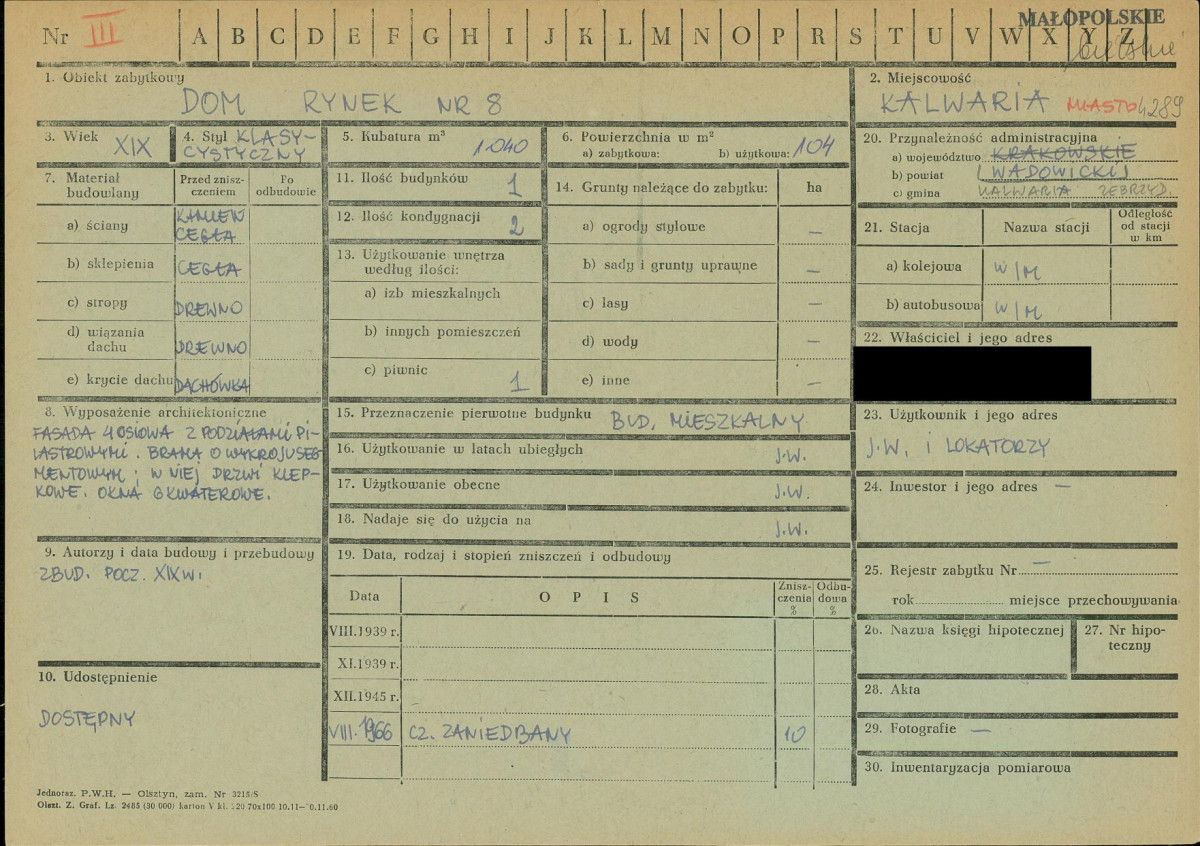 Nr III A B C D E F G H I J K L M N O P R S T U V W X Y Z
MAŁOPOLSKIE
bielskie
1. Obiekt zabytkowy
DOM RYNEK NR 8
2. Miejscowość
KALWARIA MIASTO 4289
3. Wiek XIX
4. Styl KLASY-
CYSTYCZNY
5. Kubatura m³ 1040
6. Powierzchnia w m²
a) zabytkowa: b) użytkowa: 104
7. Materiał
budowlany
Przed znisz-
czeniem
Po
odbudowie
a) ściany KAMIEŃ
CEGŁA
b) sklepienia CEGŁA
c) stropy DREWNO
d) wiązania
dachu DREWNO
e) krycie dachu DACHÓWKA
8. Wyposażenie architektoniczne
FASADA 4 OSIOWA Z PODZIAŁAMI PI-
LASTROWYMI. BRAMA O WYKROJU SEG
MENTOWYM; W NIEJ DRZWI KLEP-
KOWE. OKNA 6 KWATEROWE.
9. Autorzy i data budowy i przebudowy
ZBUD. POCZ. XIX W.
10. Udostępnienie
DOSTĘPNY
11. Ilość budynków 1
12. Ilość kondygnacji 2
13. Użytkowanie wnętrza
według ilości:
a) izb mieszkalnych
b) innych pomieszczeń
c) piwnic 1
14. Grunty należące do zabytku: ha
a) ogrody stylowe —
b) sady i grunty uprawne —
c) lasy —
d) wody —
e) inne —
15. Przeznaczenie pierwotne budynku BUD. MIESZKALNY
16. Użytkowanie w latach ubiegłych J.W.
17. Użytkowanie obecne J.W.
18. Nadaje się do użycia na J.W.
19. Data, rodzaj i stopień zniszczeń i odbudowy
Data OPIS Znisz-
czenia
%
Odbu-
dowa
%
VIII.1939 r.
XI.1939 r.
XII.1945 r.
VIII.1966 CZ. ZANIEDBANY 10
20. Przynależność administracyjna
a) województwo KRAKOWSKIE
b) powiat WADOWICKI
c) gmina KALWARIA ZEBRZYD.
21. Stacja Nazwa stacji Odległość
od stacji
w km
a) kolejowa W/M
b) autobusowa W/M
22. Właściciel i jego adres
23. Użytkownik i jego adres
J.W. I LOKATORZY
24. Inwestor i jego adres —
25. Rejestr zabytku Nr —
rok miejsce przechowywania
26. Nazwa księgi hipotecznej
27. Nr hipo-
teczny
28. Akta
29. Fotografie —
30. Inwentaryzacja pomiarowa
Jednoraz. P.W.H. — Olsztyn, zam. Nr 3215/S
Olszt. Z. Graf. Lz. 2485 (30 000) karton V kl. 70x100